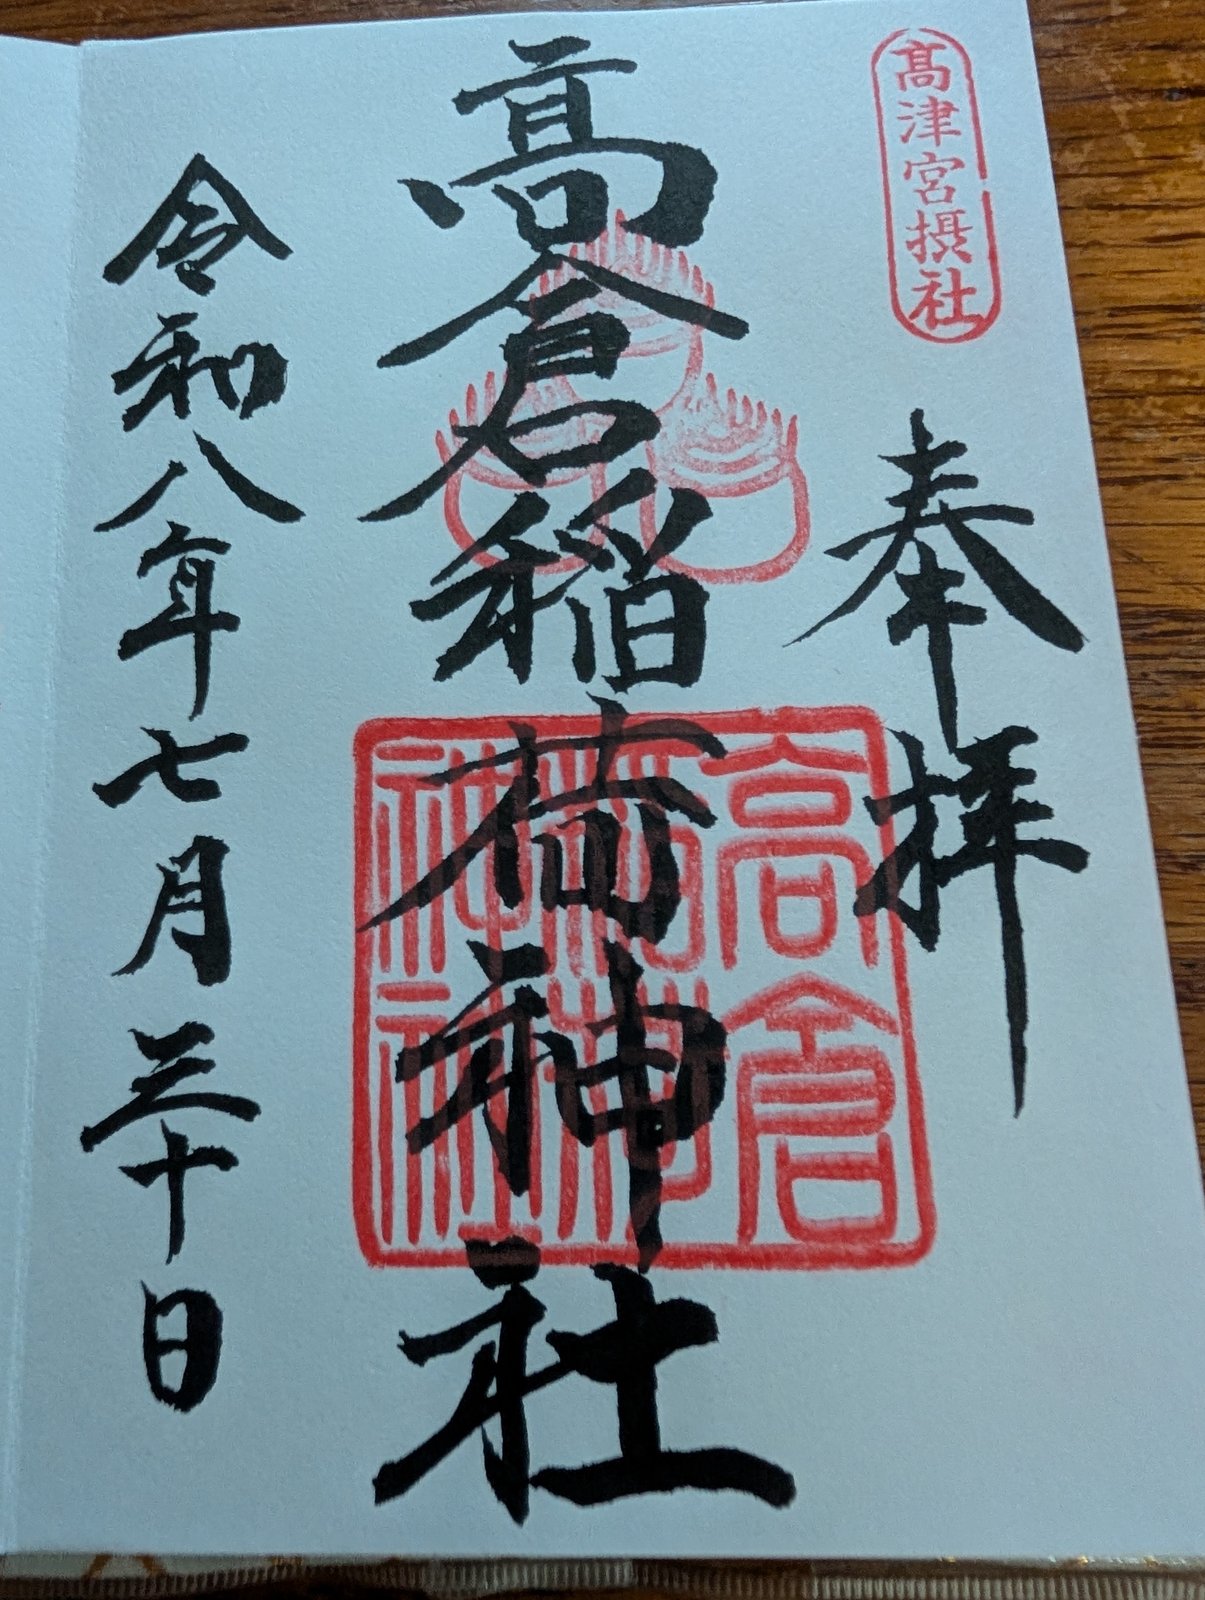 髙津宮摂社
奉拝
髙倉稲荷神社
高倉
稲荷
神社
令和八年七月三十日